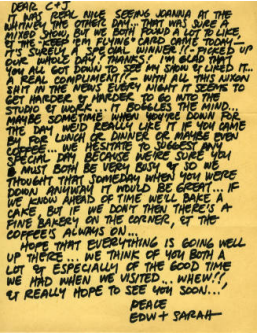 DEAR C+J
I WAS REAL NICE SEEING JOANNA AT THE
WHITNEY THE OTHER DAY, THAT WAS SURE A
MIXED SHOW, BUT WE BOTH FOUND A LOT TO LIKE.
& THE "KEEP 'EM FLYING" CARD CAME TODAY..
IT'S SURELY A SPECIAL WINNER!! PICKED UP
OUR WHOLE DAY! THANKS.. I'M GLAD THAT
YOU ALL GOT DOWN TO SEE MY SHOW & LIKED IT..
A REAL COMPLIMENT!.. WITH ALL THIS NIXON
SHIT IN THE NEWS EVERY NIGHT IT SEEMS TO
GET HARDER & HARDER TO GO INTO THE
STUDIO & WORK... IT BOGGLES THE MIND...
MAYBE SOMETIME WHEN YOU'RE DOWN FOR
THE DAY WE'D REALLY LIKE IT IF YOU CAME
BY FOR LUNCH OR DINNER OR MAYBE EVEN
COFFEE... WE HESITATE TO SUGGEST ANY
SPECIAL DAY, BECAUSE WE'RE SURE YOU
MUST BOTH BE VERY BUSY & SO WE
THOUGHT THAT SOMEDAY WHEN YOU WERE
DOWN ANYWAY IT WOULD BE GREAT... IF
WE KNOW AHEAD OF TIME WE'LL BAKE A
CAKE, BUT IF WE DON'T THEN THERE'S A
FINE BAKERY ON THE CORNER, & THE
COFFEE'S ALWAYS ON...
HOPE THAT EVERYTHING IS GOING WELL
UP THERE... WE THINK OF YOU BOTH A
LOT & ESPECIALLY OF THE GOOD TIME
WE HAD WHEN WE VISITED.. WHEW!!,
& REALLY HOPE TO SEE YOU SOON...!
PEACE
EDW + SARAH